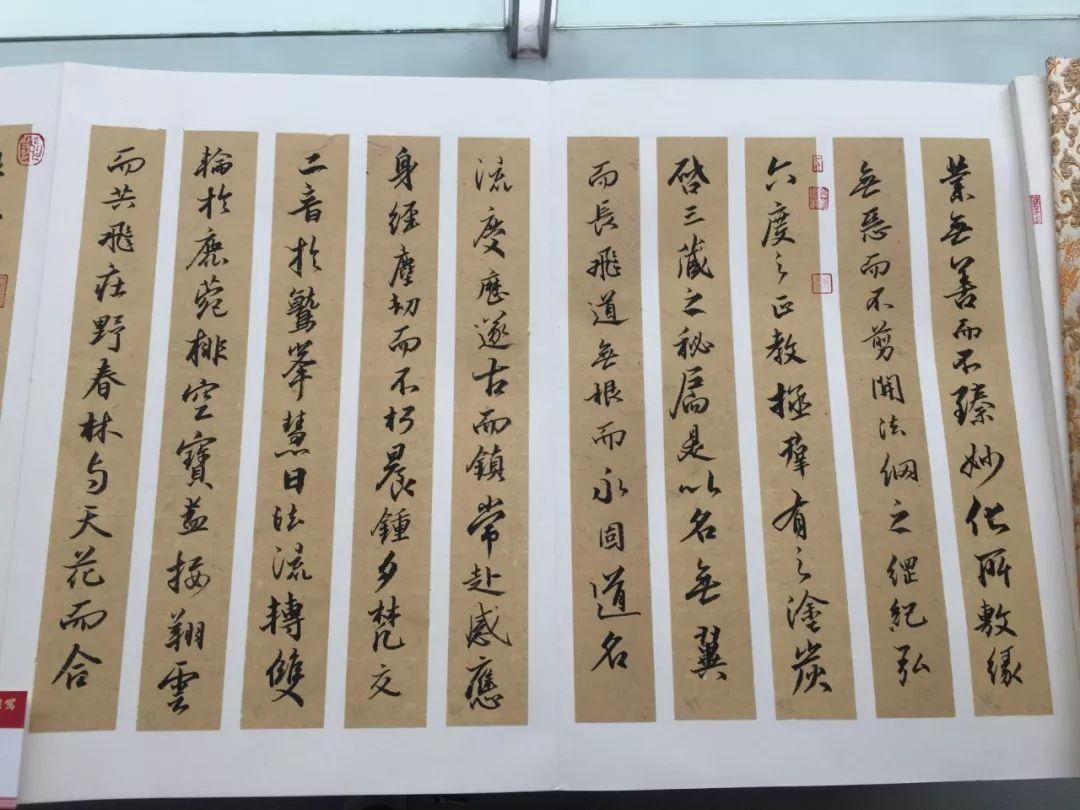 業無善而不臻妙化所敷緣
無惡而不剪開法網之綱紀弘
六度之正教拯群有之塗炭
啓三藏之秘扃是以名無翼
而長飛道無根而永固道名
流慶歷遂古而鎮常赴感應
身經塵劫而不朽晨鍾夕梵交
二音於鷲峯慧日法流轉雙
輪於鹿菀排空寶蓋接翔雲
而共飛莊野春林与天花而合